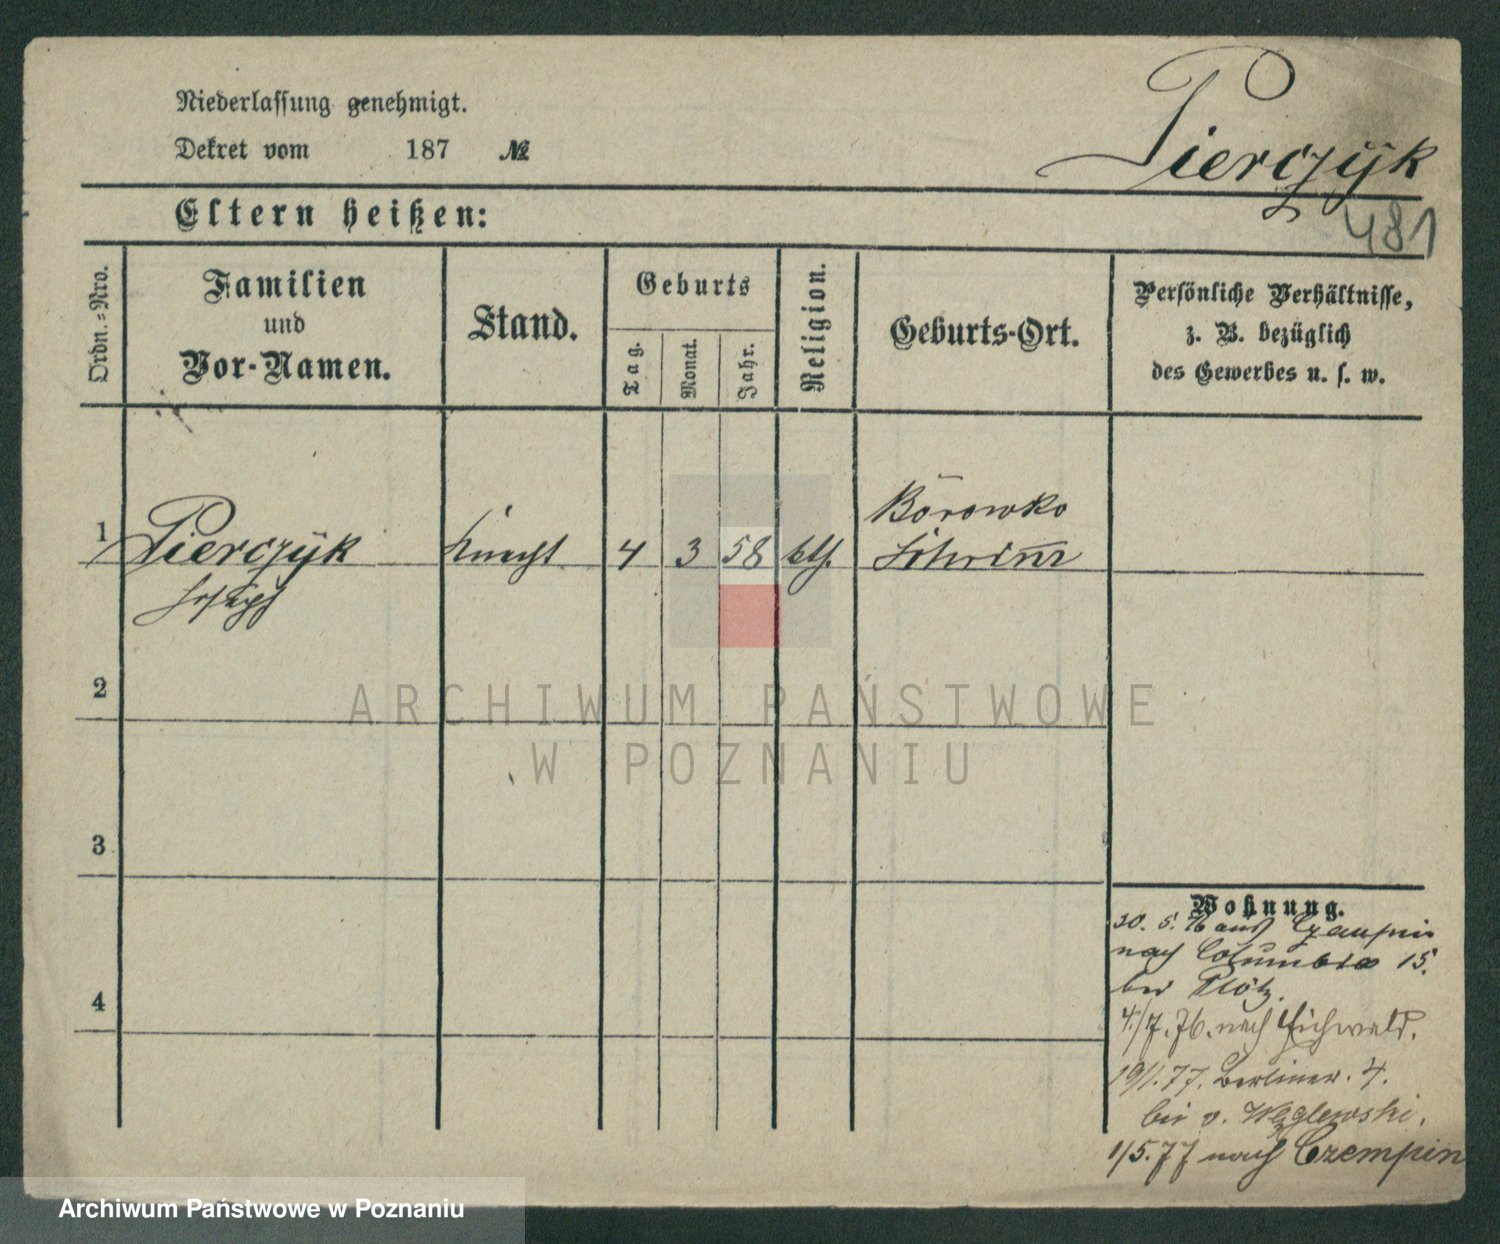 Pierczyk
481
Niederlassung genehmigt.
Dekret vom 187 №
Eltern heißen:
Ordn.-Nro.
Familien
und
Vor-Namen.
Stand.
Geburts
Tag.
Monat.
Jahr.
Religion.
Geburts-Ort.
Persönliche Verhältnisse,
z. B. bezüglich
des Gewerbes u. s. w.
1 Pierczyk Knecht 4 3 58 kth. Borowko
Joseph Schrimm
2
3
4
ARCHIWUM PAŃSTWOWE
W POZNANIU
Wohnung.
30. 5. 76 aus Czempin
nach Columbia 15.
bei Plötz.
4/7. 76. nach Eichwald.
19/1. 77. Berliner. 4.
bei v. Węglewski.
1/5. 77 nach Czempin
Archiwum Państwowe w Poznaniu